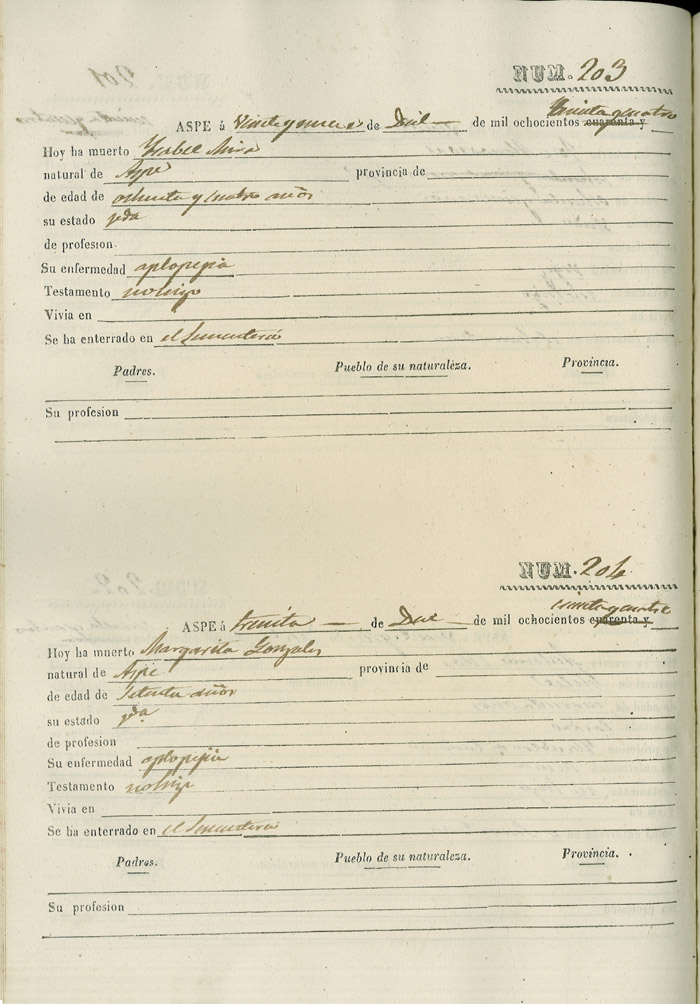 NUM. 203
treinta y cuatro
ASPE á veinte y nueve de Dbre de mil ochocientos cuarenta y
Hoy ha muerto Ysabel Mira
natural de Aspe provincia de
de edad de ochenta y cuatro años
su estado vda
de profesion
Su enfermedad aplopegia
Testamento no hizo
Vivia en
Se ha enterrado en el
Padres. Pueblo de su naturaleza. Provincia.
Su profesion
NUM. 204
treinta y cuatro
ASPE á treinta de de mil ochocientos cuarenta y
Hoy ha muerto Margarita Gonzales
natural de Aspe provincia de
de edad de Setenta años
su estado vda
de profesion
Su enfermedad aplopegia
Testamento no hizo
Vivia en
Se ha enterrado en el
Padres. Pueblo de su naturaleza. Provincia.
Su profesion